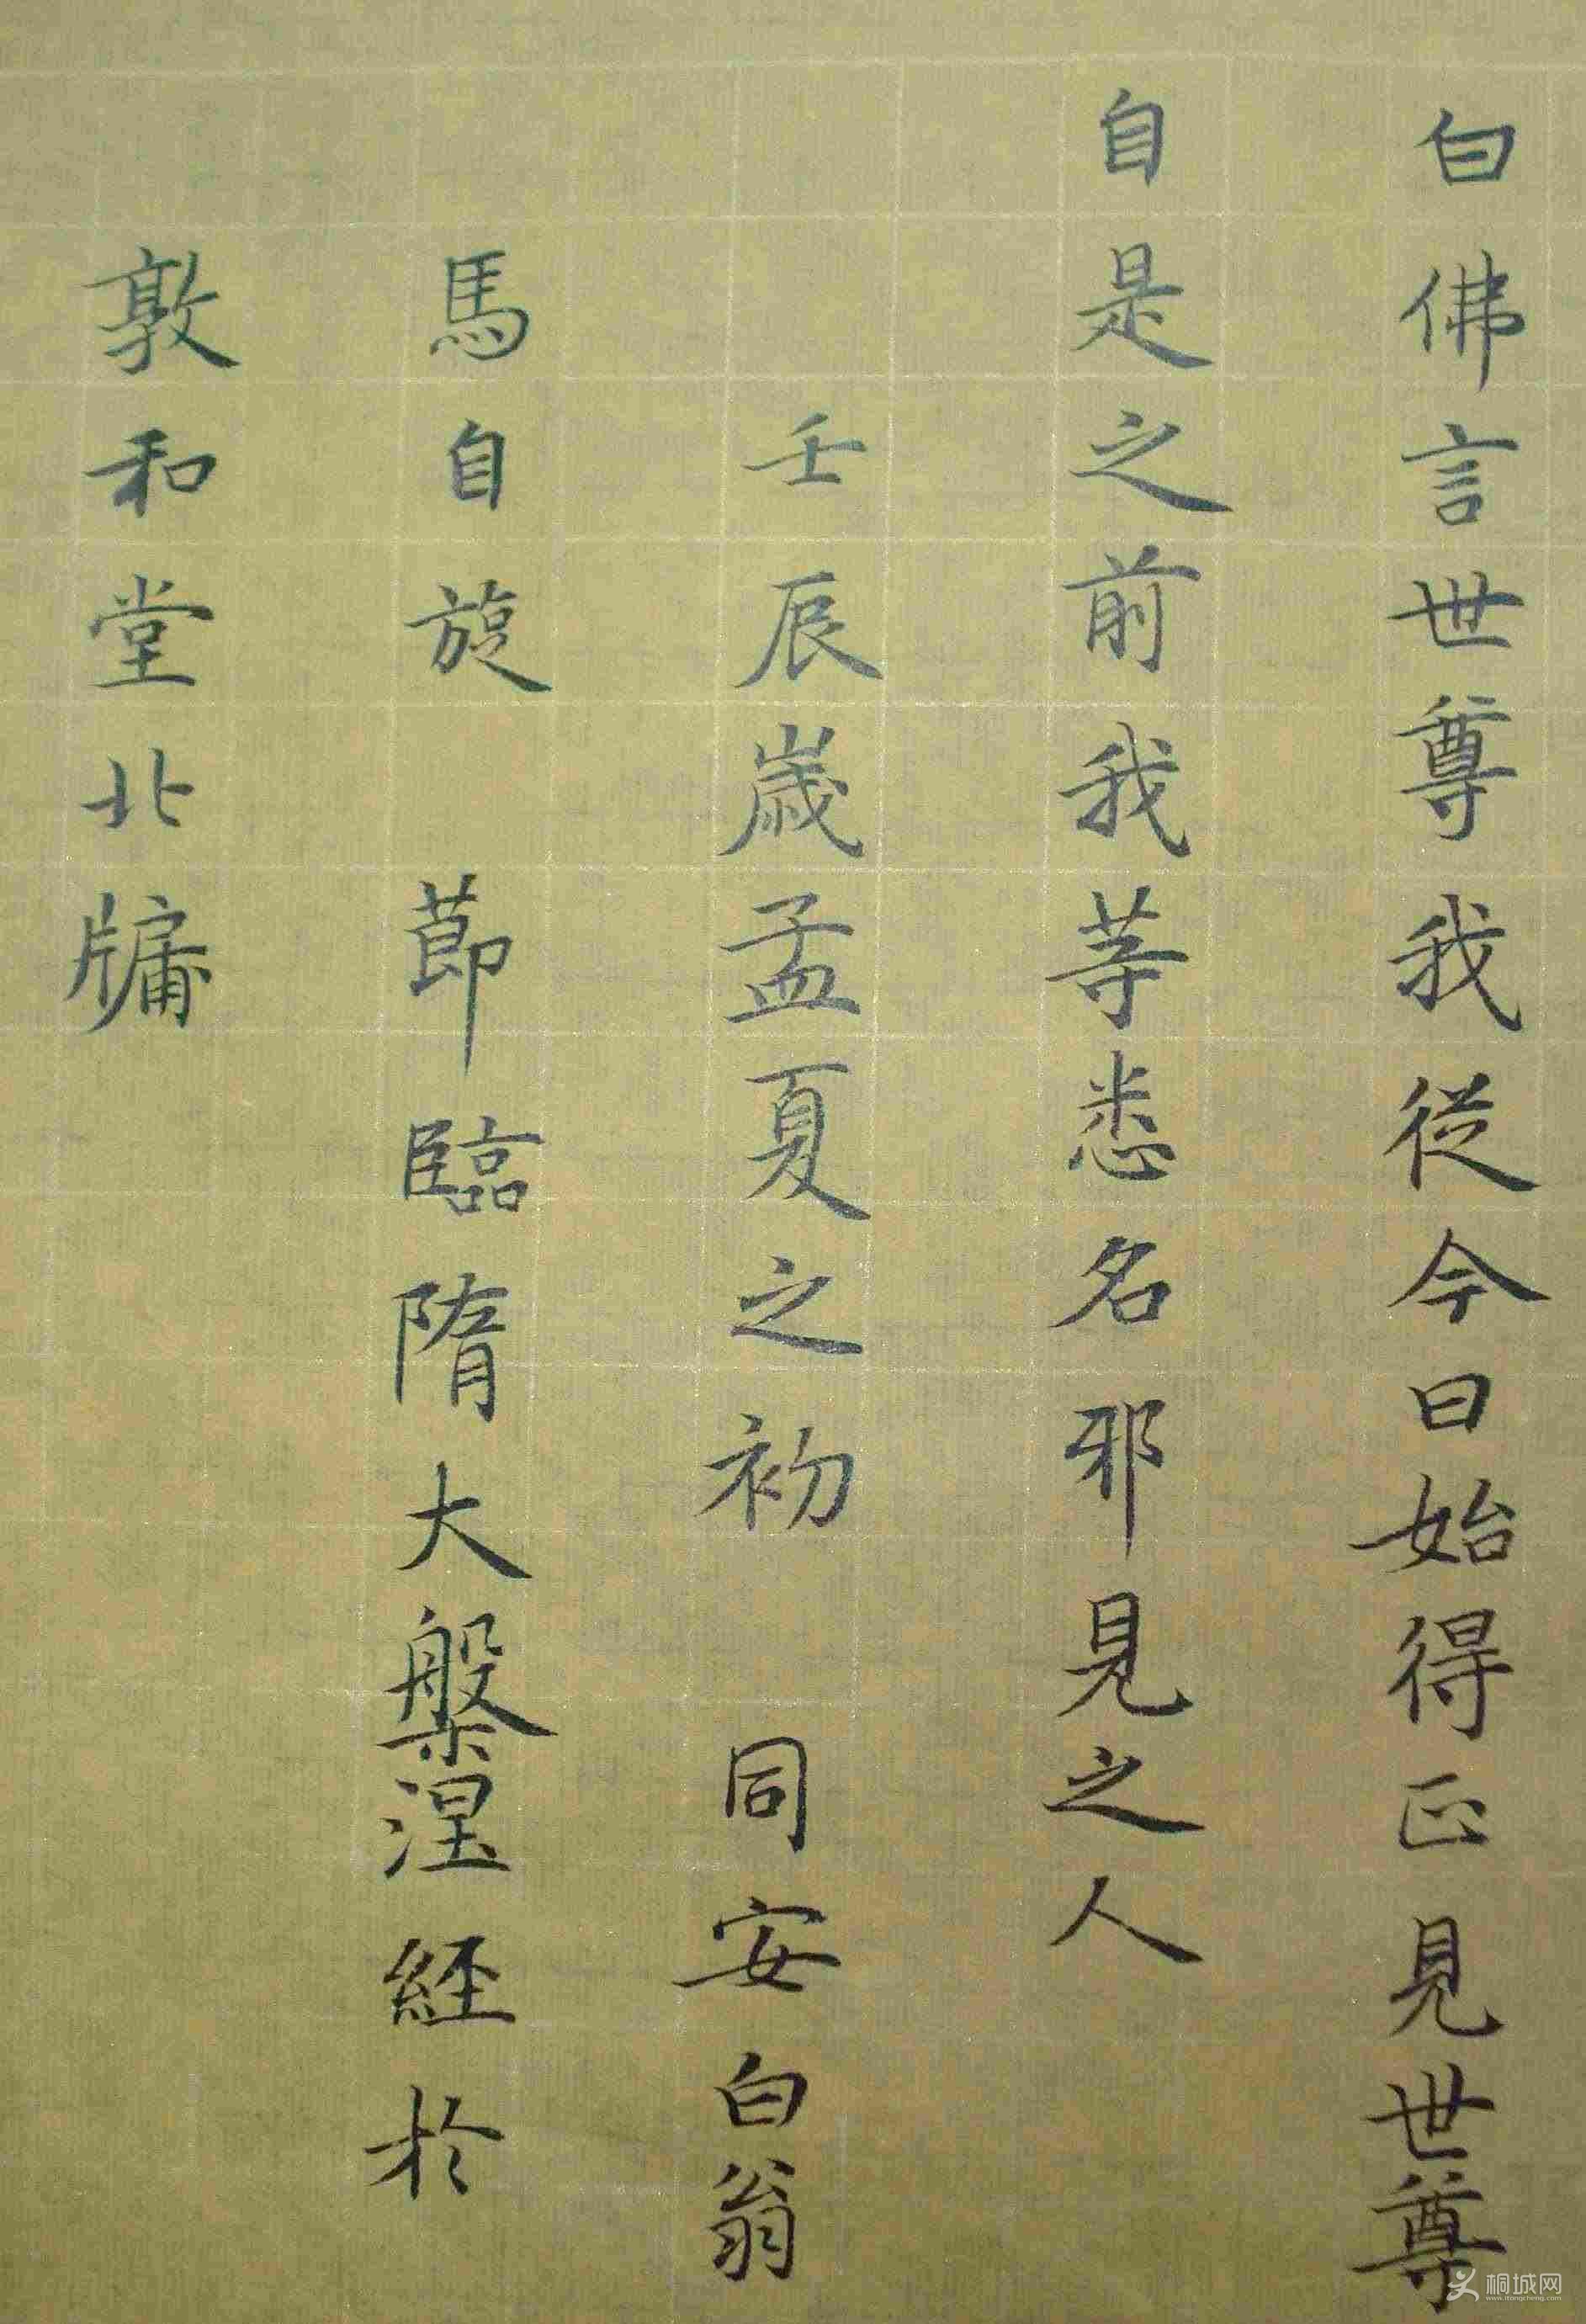 白佛言世尊我從今日始得正見世尊
自是之前我等悉名邪見之人
壬辰歲孟夏之初 同安白翁
馬自旋 節臨隋大槃涅經於
敦和堂北牖
桐城网
www.itongcheng.com